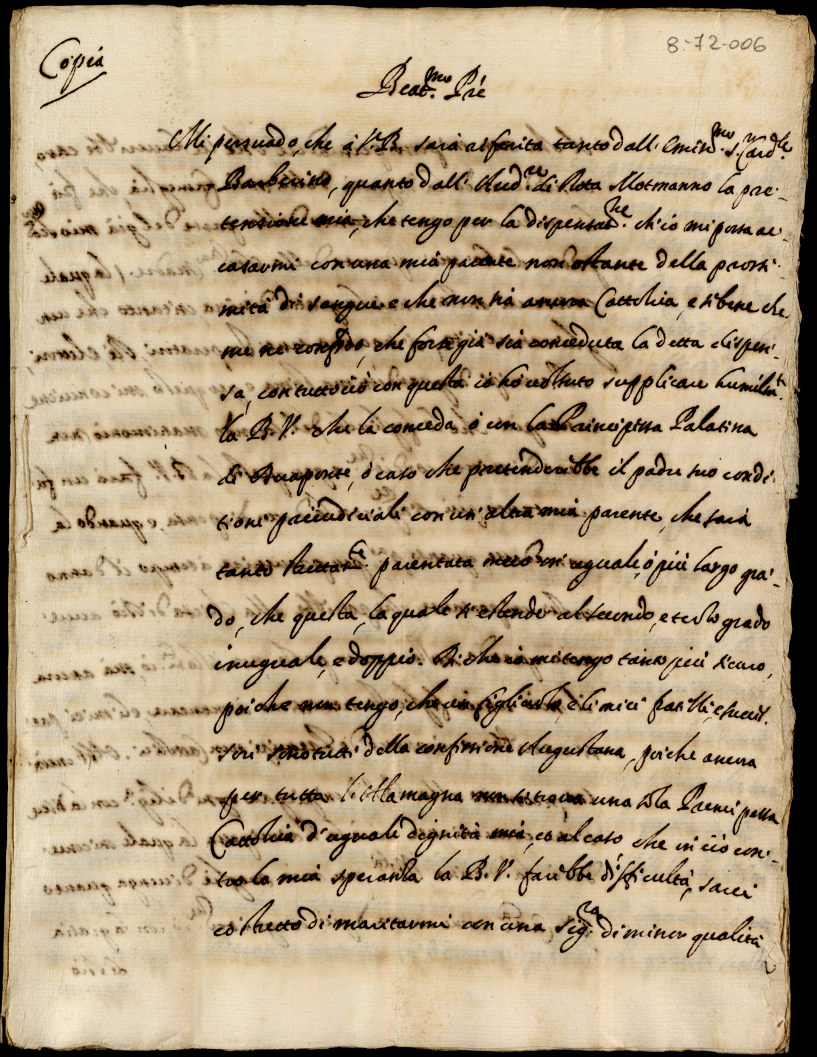 8-72-006
Copia
Beat.mo Pre
Mi persuado, che à V.B. sarà riferita tanto dall' Emin.mo s.r Card.le
Barberino, quanto dall' Aud.re di Rota Motmanno la pre-
tensione mia, che tengo per la dispensat.ne ch'io mi possa ac-
casarmi con una mia parente non ostante della prossi-
mità di sangue e che non sia ancora Cattolica, e si bene che
me ne confido, che forse già sia conceduta la detta dispen-
sa, con tutto ciò con questa io ho voluto supplicare humilm.te
la B.V. che la conceda, ò con la Principessa Palatina
di Duaponte, ò caso che pretenderebbe il padre suo condi-
tioni preiudiciali con un' altra mia parente, che sarà
tanto parentata meco in uguale, ò più largo gra-
do, che questa, la quale si estende al secondo, e terzo grado
inuguale, e doppio. Di che io mi tengo tanto più sicuro,
poiche non tengo, che un figliuolo, e li miei fratelli, e succes-
sori sono tutti della confessione Augustana, poiche ancora
per tutta l'Allamagna non si trova una sola Prencipessa
Cattolica d'uguale dignità mia, et al caso che in ciò con-
tro la mia speranza la B.V. farebbe difficultà, sarei
costretto di maritarmi con una sig.ra di minor qualità